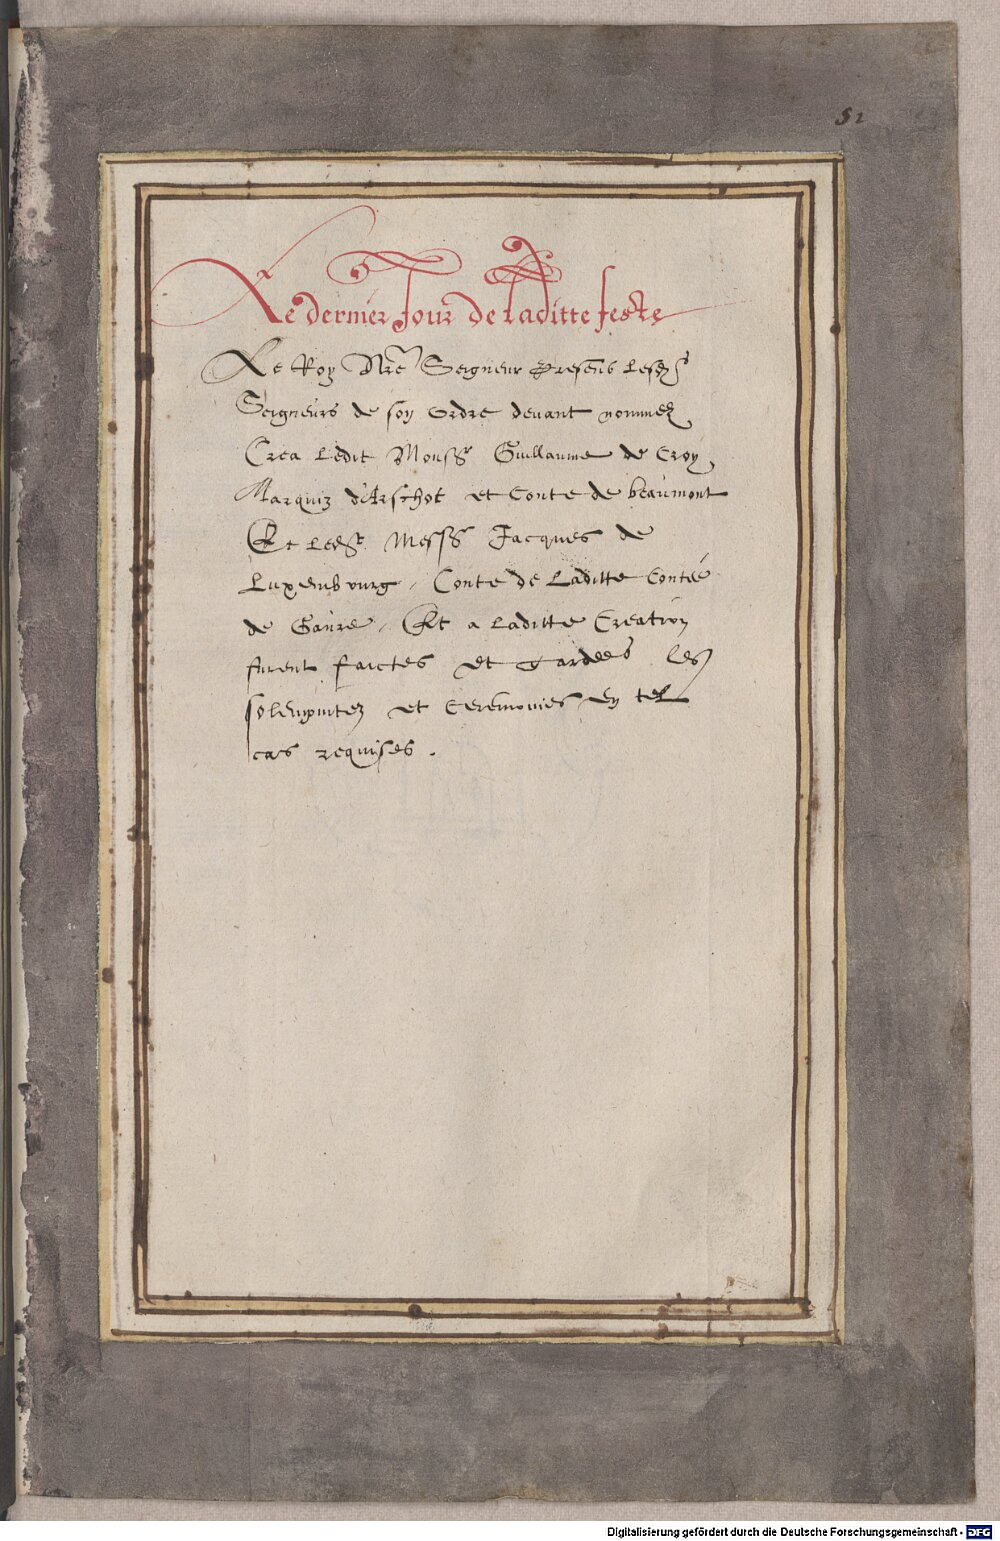 52
Le dernier Jour de laditte feste
Le Roy Nr̃e Seigneur presens lesds
Seigneurs de son ordre devant nommez
Crea ledit Monssr Guillaume de Croy
Marquiz d'Arschot et Conte de beaumont
Et ledsr Messr Jacques de
Luxembourg, Conte de laditte Conteé
de Gavre, Et a laditte Creation
furent faictes et gardees les
solempnitez et Ceremonies en tel
cas requises.
Digitalisierung gefördert durch die Deutsche Forschungsgemeinschaft - DFG